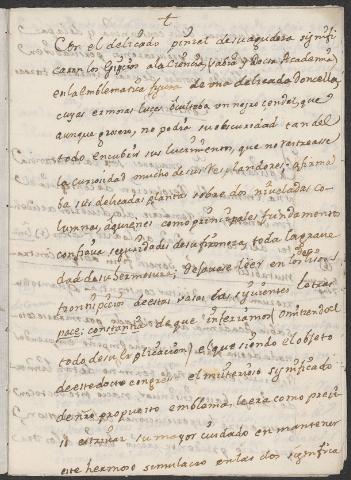 Con el delicado pinzel de su agudeza signifi-
caron los Egipcios a la Ciencia, (sabia y Docta Academia)
en la emblematica figura de una delicada Doncella,
cuyas ermosas luces ocultaba un rojo cendal, que
aunque grosero, no podia su obscuridad tan del
todo encubrir sus lucimientos, que no rastrease
la curiosidad mucho de sus resplandores: afirma
ba sus delicadas plantas sobre dos niveladas co-
lumnas, a quienes como principales fundamentos
confiaua seguridades de su firmeza, toda la grave
dad de su hermosura; dejauase leer en los
frontispicios de estas vasas las siguientes letras
pace; constantia de que inferiamos (omitiendo el
todo de su explicacion) el que siendo el objeto
de este docto congreso el misterioso significado
de nro propuesto emblema, le era como preci-
so estrivar su mayor cuidado en mantener
este hermoso simulacro en las dos significa